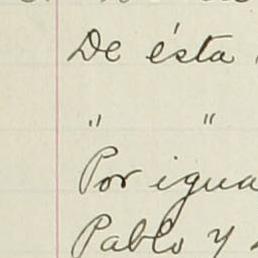 De ésta
" "
Por igua
Pablo y